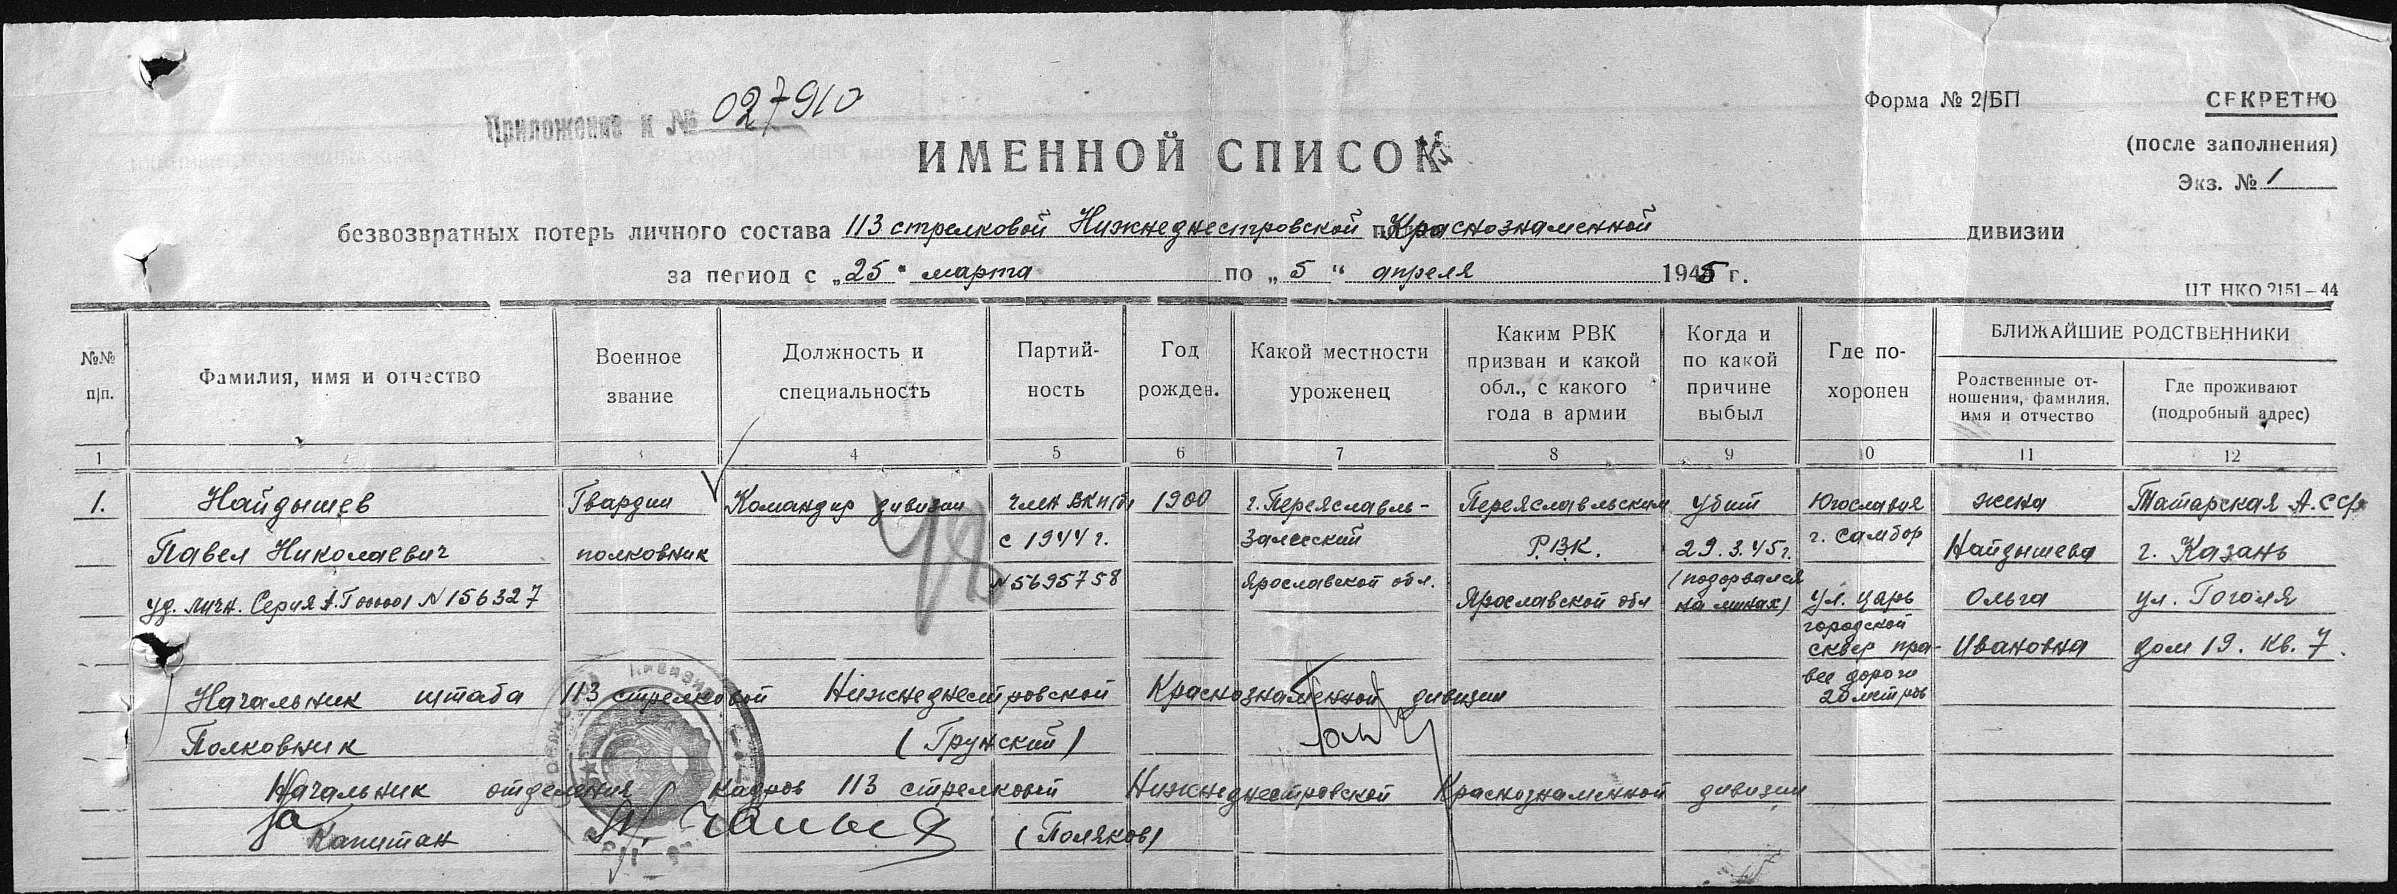 Приложение к № 027910
Форма № 2/БП
СЕКРЕТНО
(после заполнения)
Экз. № 1
ИМЕННОЙ СПИСОК
безвозвратных потерь личного состава 113 стрелковой Нижнеднестровской Краснознаменной дивизии
за период с „25" марта по „5" апреля 1945 г.
ЦТ НКО 2151–44
№№ п/п.
Фамилия, имя и отчество
Военное звание
Должность и специальность
Партий-
ность
Год рожден.
Какой местности уроженец
Каким РВК
призван и какой
обл., с какого
года в армии
Когда и
по какой
причине
выбыл
Где по-
хоронен
БЛИЖАЙШИЕ РОДСТВЕННИКИ
Родственные от-
ношения, фамилия,
имя и отчество
Где проживают
(подробный адрес)
1 4 5 6 7 8 9 10 11 12
1. Найдышев
Павел Николаевич
уд. личн. Серия № 156327
Гвардии
полковник
Командир дивизии
член ВКП(б)
с 1944 г.
№5695758
1900
г. Переяславль-
Залесский
Ярославской обл.
Переяславским
Р.В.К.
Ярославской обл
убит
29.3.45г.
(подорвался
на минах)
Югославия
г. Самбор
ул. царь
городской
сквер пра-
вее дороги
20 метров
жена
Найдышева
Ольга
Ивановна
Татарская А.ССР
г. Казань
ул. Гоголя
дом 19. кв. 7.
Начальник штаба 113 стрелковой Нижнеднестровской Краснознаменной дивизии
Полковник (Грунский)
Начальник отделения кадров 113 стрелковой Нижнеднестровской Краснознаменной дивизии
за
Капитан (Поляков)